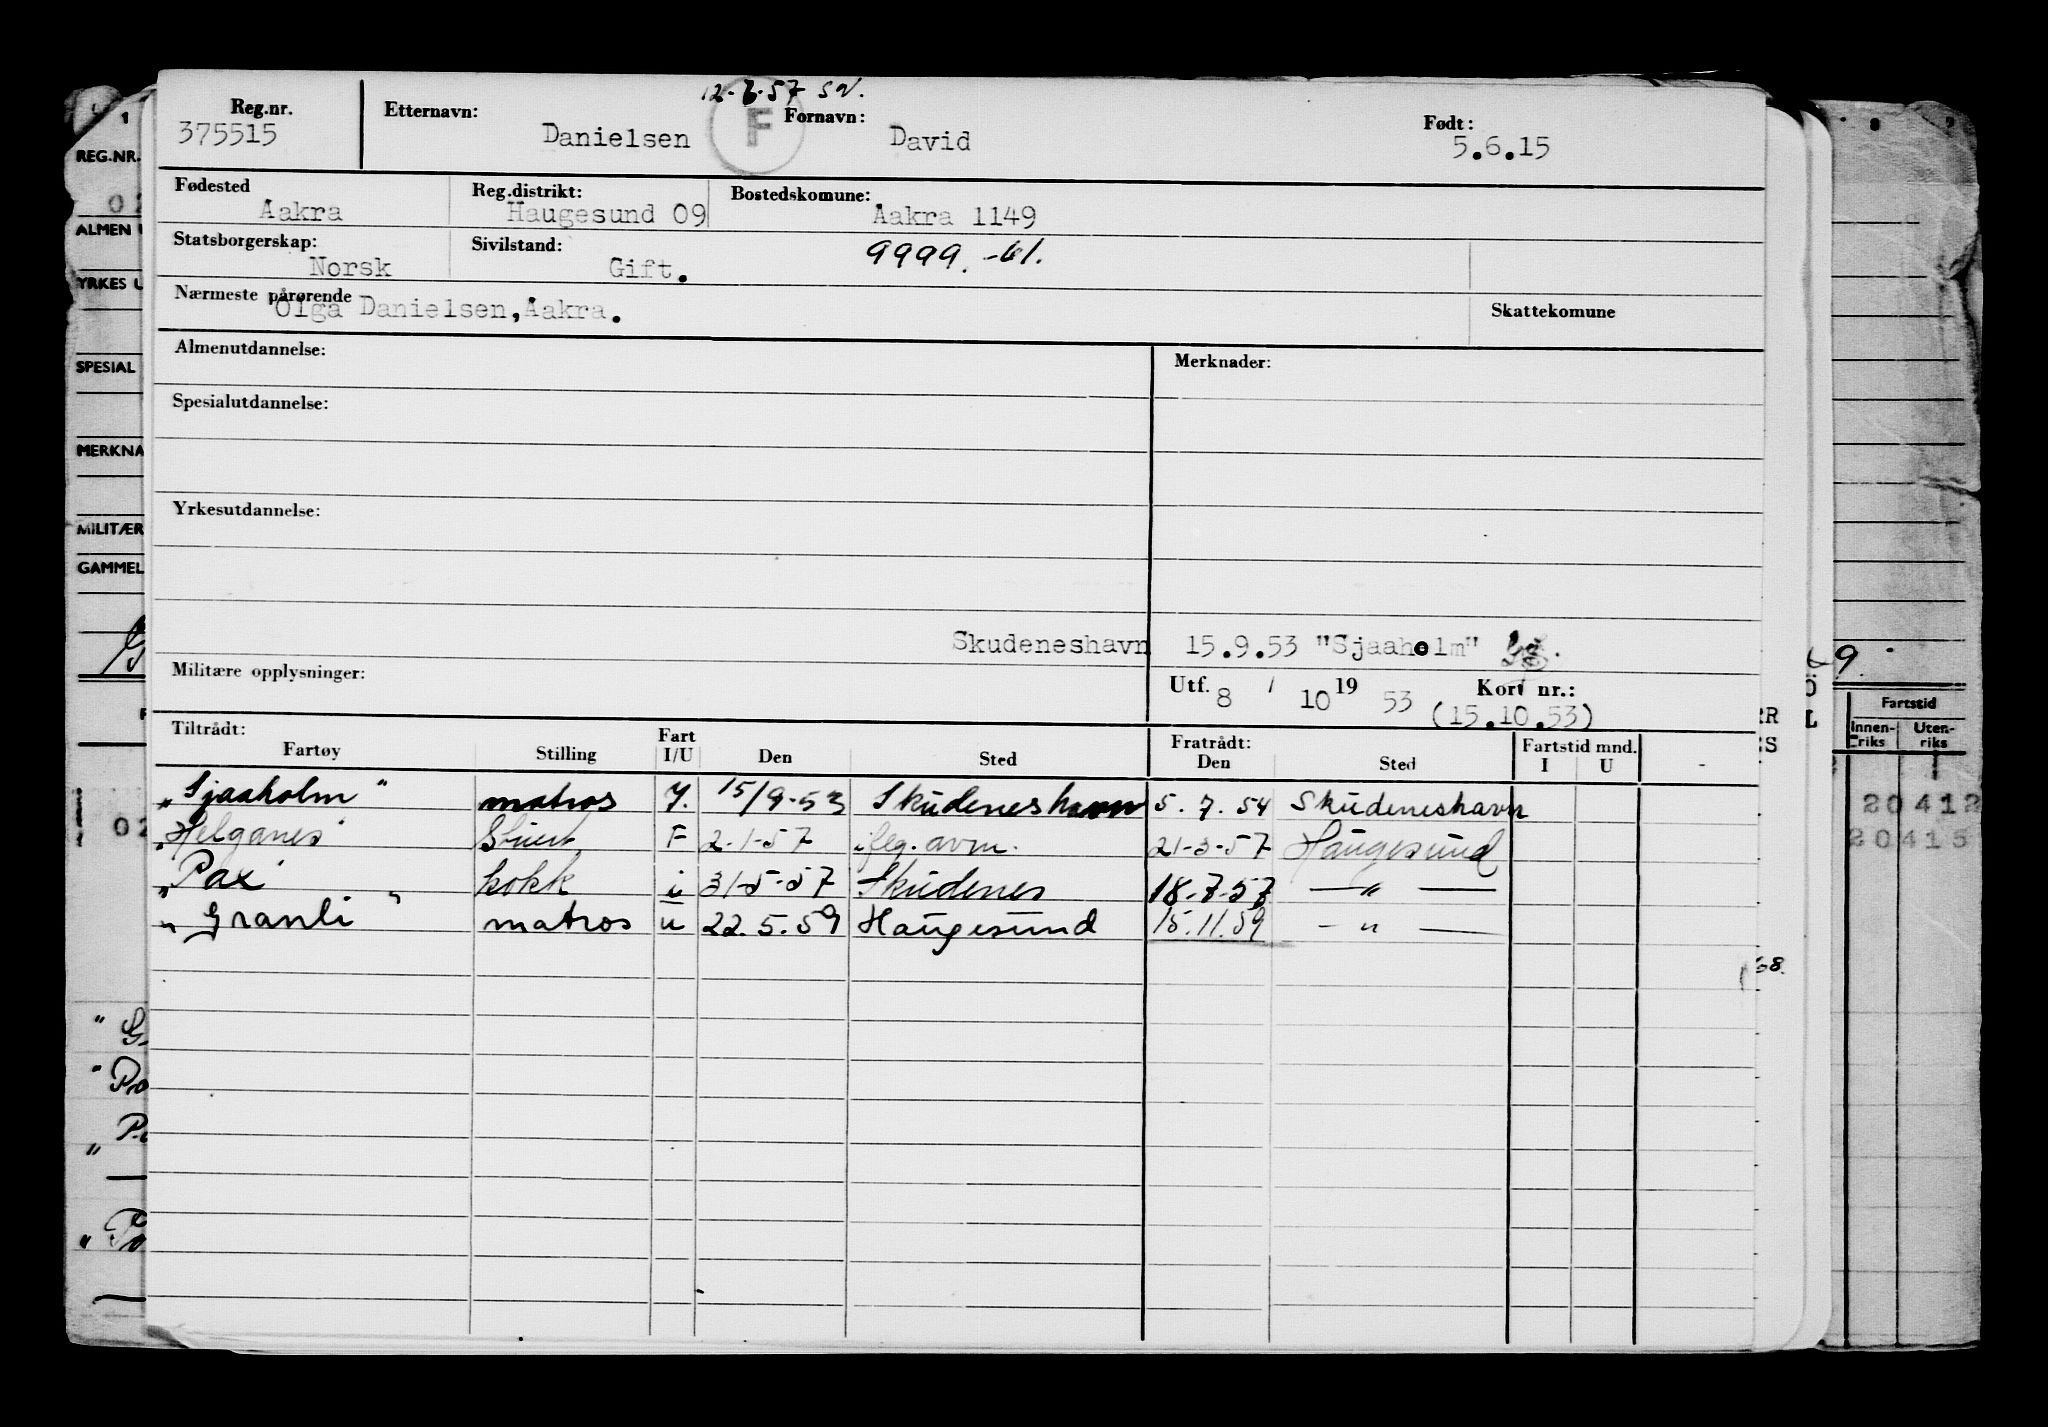 12-7-57 SN.
Reg.nr. Etternavn: F Fornavn: Født:
375515 Danielsen David 5.6.15
Fødested Reg.distrikt: Bostedskomune:
Aakra Haugesund 09 Aakra 1149
Statsborgerskap: Sivilstand: 9999.-61.
Norsk Gift.
Nærmeste pårørende Skattekomune
Olga Danielsen, Aakra.
Almenutdannelse: Merknader:
Spesialutdannelse:
Yrkesutdannelse:
Skudeneshavn 15.9.53 "Sjaaholm"
Militære opplysninger: Utf. 8 / 10 19 53 Kort nr.:
(15.10.53)
Tiltrådt: Fart Fratrådt: Fartstid mnd.
Fartøy Stilling I/U Den Sted Den Sted I U -
"Sjaaholm" matros I. 15/9-53 Skudeneshavn 5.7.54 Skudeneshavn
"Helganes" Stuert F 2-1-57 iflg. avm. 21-3-57 Haugesund
"Pax" kokk i 31-5-57 Skudenes 18-7-57 — " —
"Granli" matros u 22.5.59 Haugesund 15.11.59 - " —
REG.NR.
ALMEN U
YRKES U
SPESIAL
MERKNA
MILITÆR
GAMMEL
9.
Fartstid
Innen-riks Uten-riks
20412
20415
68.